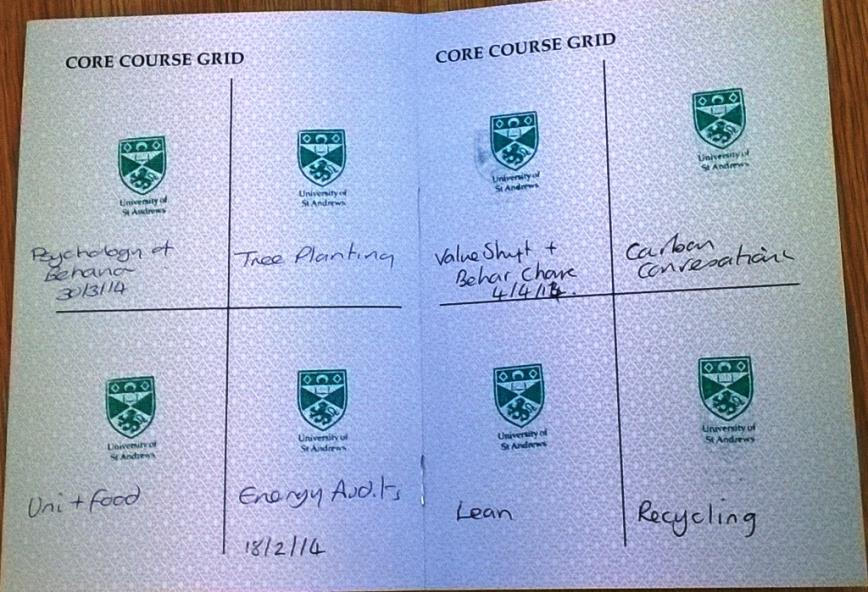 CORE COURSE GRID
University of
St Andrews
Psychology of
Behavior
30/3/14
University of
St Andrews
Tree Planting
University of
St Andrews
Uni + Food
University of
St Andrews
Energy Audits
18/2/14
CORE COURSE GRID
University of
St Andrews
Value Shift +
Behar Chane
4/4/14.
University of
St Andrews
Carbon
Conversations
University of
St Andrews
Lean
University of
St Andrews
Recycling